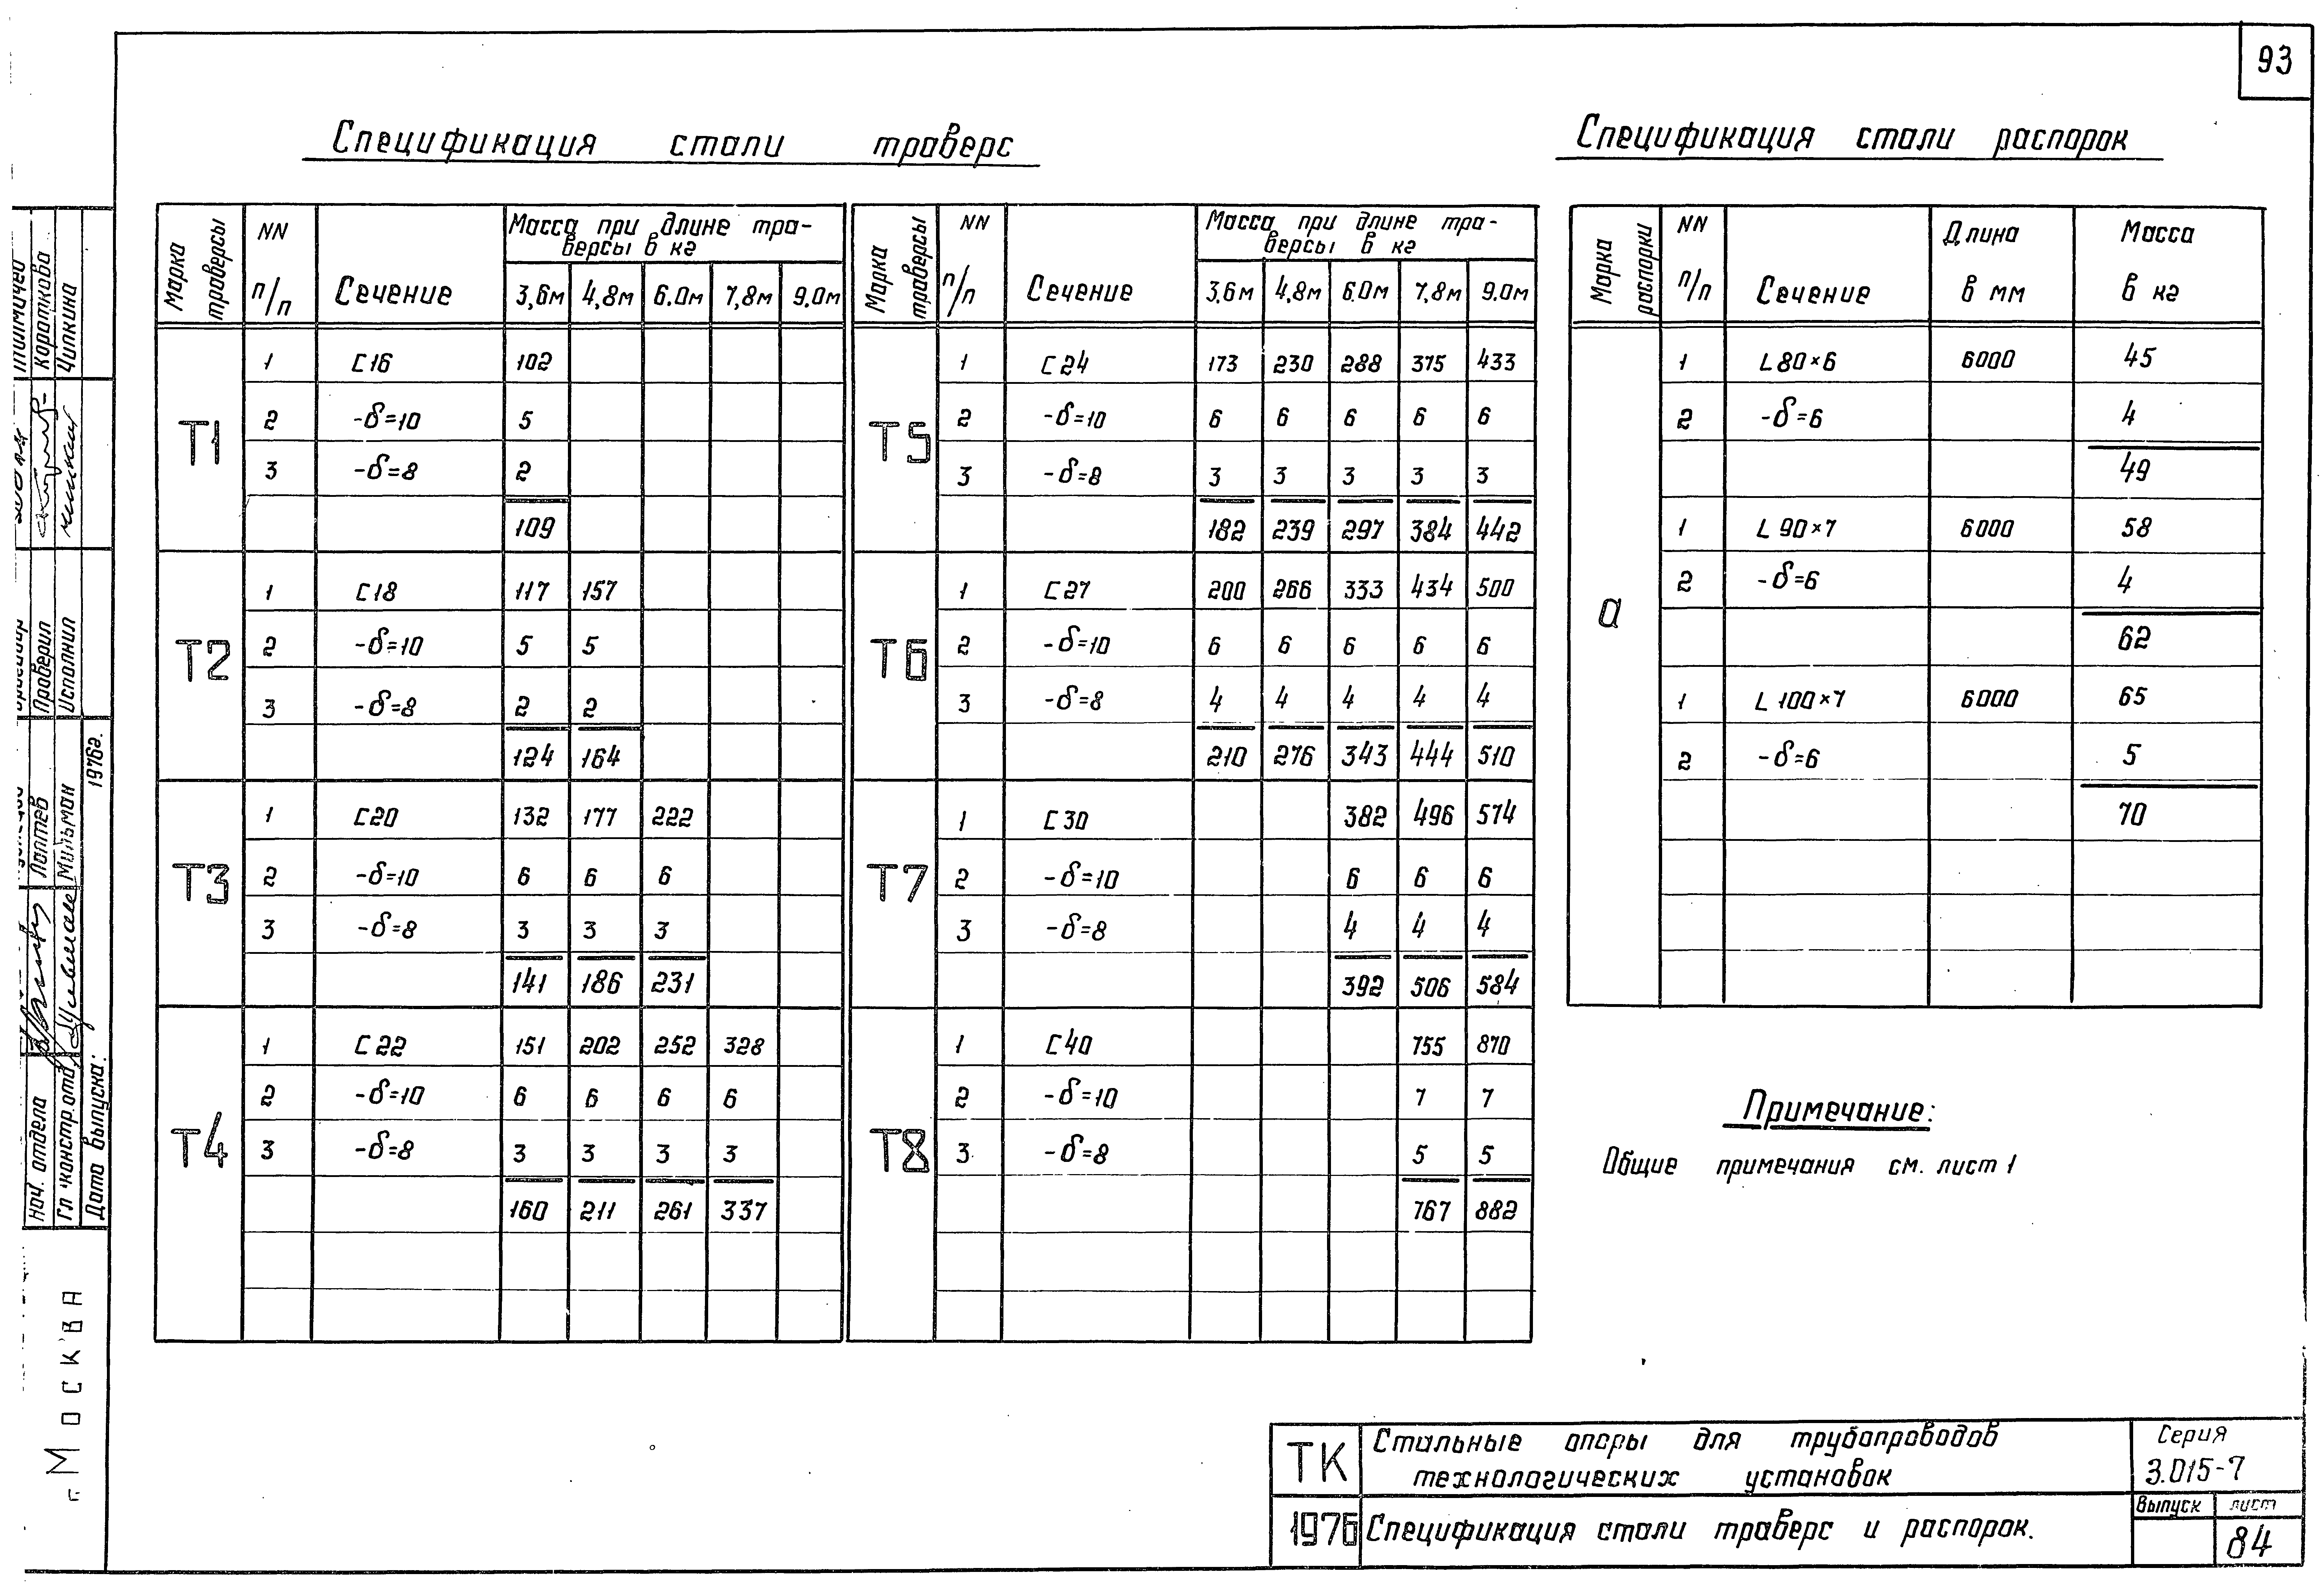 93
Спецификация стали траверс
Спецификация стали распорок
Марка траверсы | NN п/п | Сечение | Масса при длине тра-
версы в кг
3,6м | 4,8м | 6.0м | 7,8м | 9.0м
Т1
1 | С16 | 102
2 | -δ=10 | 5
3 | -δ=8 | 2
109
Т2
1 | С18 | 117 | 157
2 | -δ=10 | 5 | 5
3 | -δ=8 | 2 | 2
124 | 164
Т3
1 | С20 | 132 | 177 | 222
2 | -δ=10 | 6 | 6 | 6
3 | -δ=8 | 3 | 3 | 3
141 | 186 | 231
Т4
1 | С22 | 151 | 202 | 252 | 328
2 | -δ=10 | 6 | 6 | 6 | 6
3 | -δ=8 | 3 | 3 | 3 | 3
160 | 211 | 261 | 337
Марка траверсы | NN п/п | Сечение | Масса при длине тра-
версы в кг
3,6м | 4,8м | 6.0м | 7,8м | 9.0м
Т5
1 | С24 | 173 | 230 | 288 | 375 | 433
2 | -δ=10 | 6 | 6 | 6 | 6 | 6
3 | -δ=8 | 3 | 3 | 3 | 3 | 3
182 | 239 | 297 | 384 | 442
Т6
1 | С27 | 200 | 266 | 333 | 434 | 500
2 | -δ=10 | 6 | 6 | 6 | 6 | 6
3 | -δ=8 | 4 | 4 | 4 | 4 | 4
210 | 276 | 343 | 444 | 510
Т7
1 | С30 | 382 | 496 | 574
2 | -δ=10 | 6 | 6 | 6
3 | -δ=8 | 4 | 4 | 4
392 | 506 | 584
Т8
1 | С40 | 755 | 870
2 | -δ=10 | 7 | 7
3 | -δ=8 | 5 | 5
767 | 882
Марка распорки | NN п/п | Сечение | Длина в мм | Масса в кг
а
1 | L80×6 | 6000 | 45
2 | -δ=6 | 4
49
1 | L90×7 | 6000 | 58
2 | -δ=6 | 4
62
1 | L100×7 | 6000 | 65
2 | -δ=6 | 5
70
Примечание:
Общие примечания см. лист 1
ТК | Стальные опоры для трубопроводов
технологических установок
Серия
3.015-7
1976 | Спецификация стали траверс и распорок.
Выпуск | лист
84
Короткова
Ципкина
Проверил
Исполнил
Лаптев
Мильман
1976г.
Нач. отдела
Гл. констр. отд.
Дата выпуска:
г. Москва